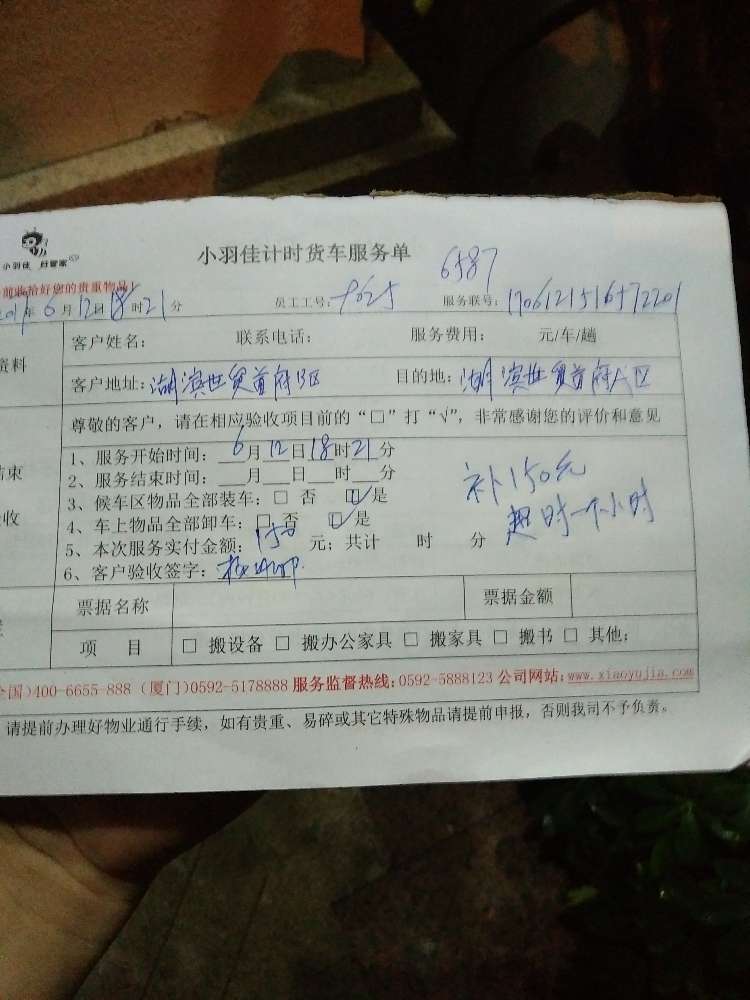 小羽佳 好管家
小羽佳计时货车服务单
6587
前收拾好您的贵重物品!
年6月12日18时21分 员工工号: 9625 服务联号: 1706121516572201
资料
客户姓名: 联系电话: 服务费用: 元/车/趟
客户地址: 湖滨世贸首府B区 目的地: 湖滨世贸首府A区
尊敬的客户，请在相应验收项目前的“□”打“√”，非常感谢您的评价和意见
1、服务开始时间: 6月12日18时21分
2、服务结束时间: 月 日 时 分
3、候车区物品全部装车: □ 否 ☑是
4、车上物品全部卸车: □ 否 ☑是
5、本次服务实付金额: 150 元; 共计 时 分
6、客户验收签字:
补150元
超时一个小时
结束
收
票据名称 票据金额
项 目 □ 搬设备 □ 搬办公家具 □ 搬家具 □ 搬书 □ 其他:
全国)400-6655-888 (厦门)0592-5178888 服务监督热线: 0592-5888123 公司网站: www.xiaoyujia.com
请提前办理好物业通行手续，如有贵重、易碎或其它特殊物品请提前申报，否则我司不予负责。